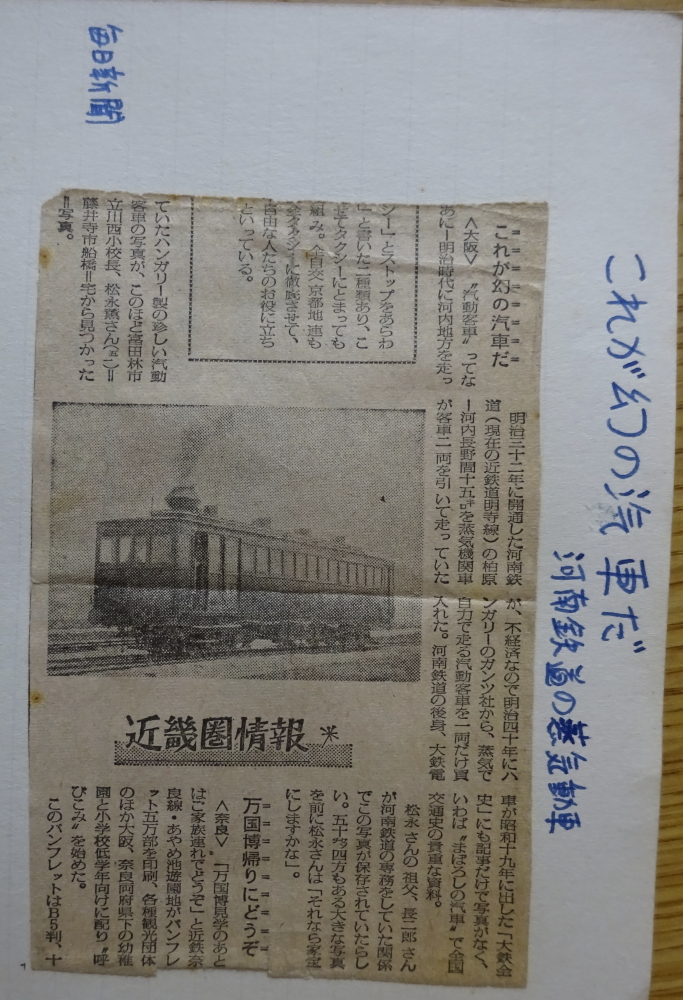 これが幻の汽車だ
河南鉄道の蒸気動車
毎日新聞
これが幻の汽車だ
＜大阪＞　〝汽動客車〟ってな
あに―明治時代に河内地方を走っ
ていたハンガリー製の珍しい汽動
客車の写真が、このほど富田林市
立川西小校長、松永薫さん
藤井寺市船橋＝宅から見つかった
＝写真。
明治三十二年に開通した河南鉄
道（現在の近鉄道明寺線）の柏原
―河内長野間十五㌔を蒸気機関車
が客車二両を引いて走っていた
が、不経済なので明治四十年にハ
ンガリーのガンツ社から、蒸気で
自力で走る汽動客車を一両だけ買
入れた。河南鉄道の後身、大鉄電
車が昭和十九年に出した「大鉄全
史」にも記事だけで写真がなく、
いわば〝まぼろしの汽車〟で全国
交通史の貴重な資料。
松永さんの祖父、長二郎さん
が河南鉄道の専務をしていた関係
でこの写真が保存されていたらし
い。五十㌢四方もある大きな写真
を前に松永さんは「それなら家宝
にしますかな」。
シー」とストップをあらわ
」と書いた二種類あり、こ
せてタクシーにとまっても
組み。全自交京都地連も
全タクシーに徹底させて、
自由な人たちのお役に立ち
といっている。
近畿圏情報
万国博帰りにどうぞ
＜奈良＞　「万国博見学のあと
はご家族連れでどうぞ」と近鉄奈
良線・あやめ池遊園地がパンフレ
ット五万部を印刷、各種観光団体
のほか大阪、奈良両府県下の幼稚
園と小学校低学年向けに配り〝呼
びこみ〟を始めた。
このパンフレットはB5判、十